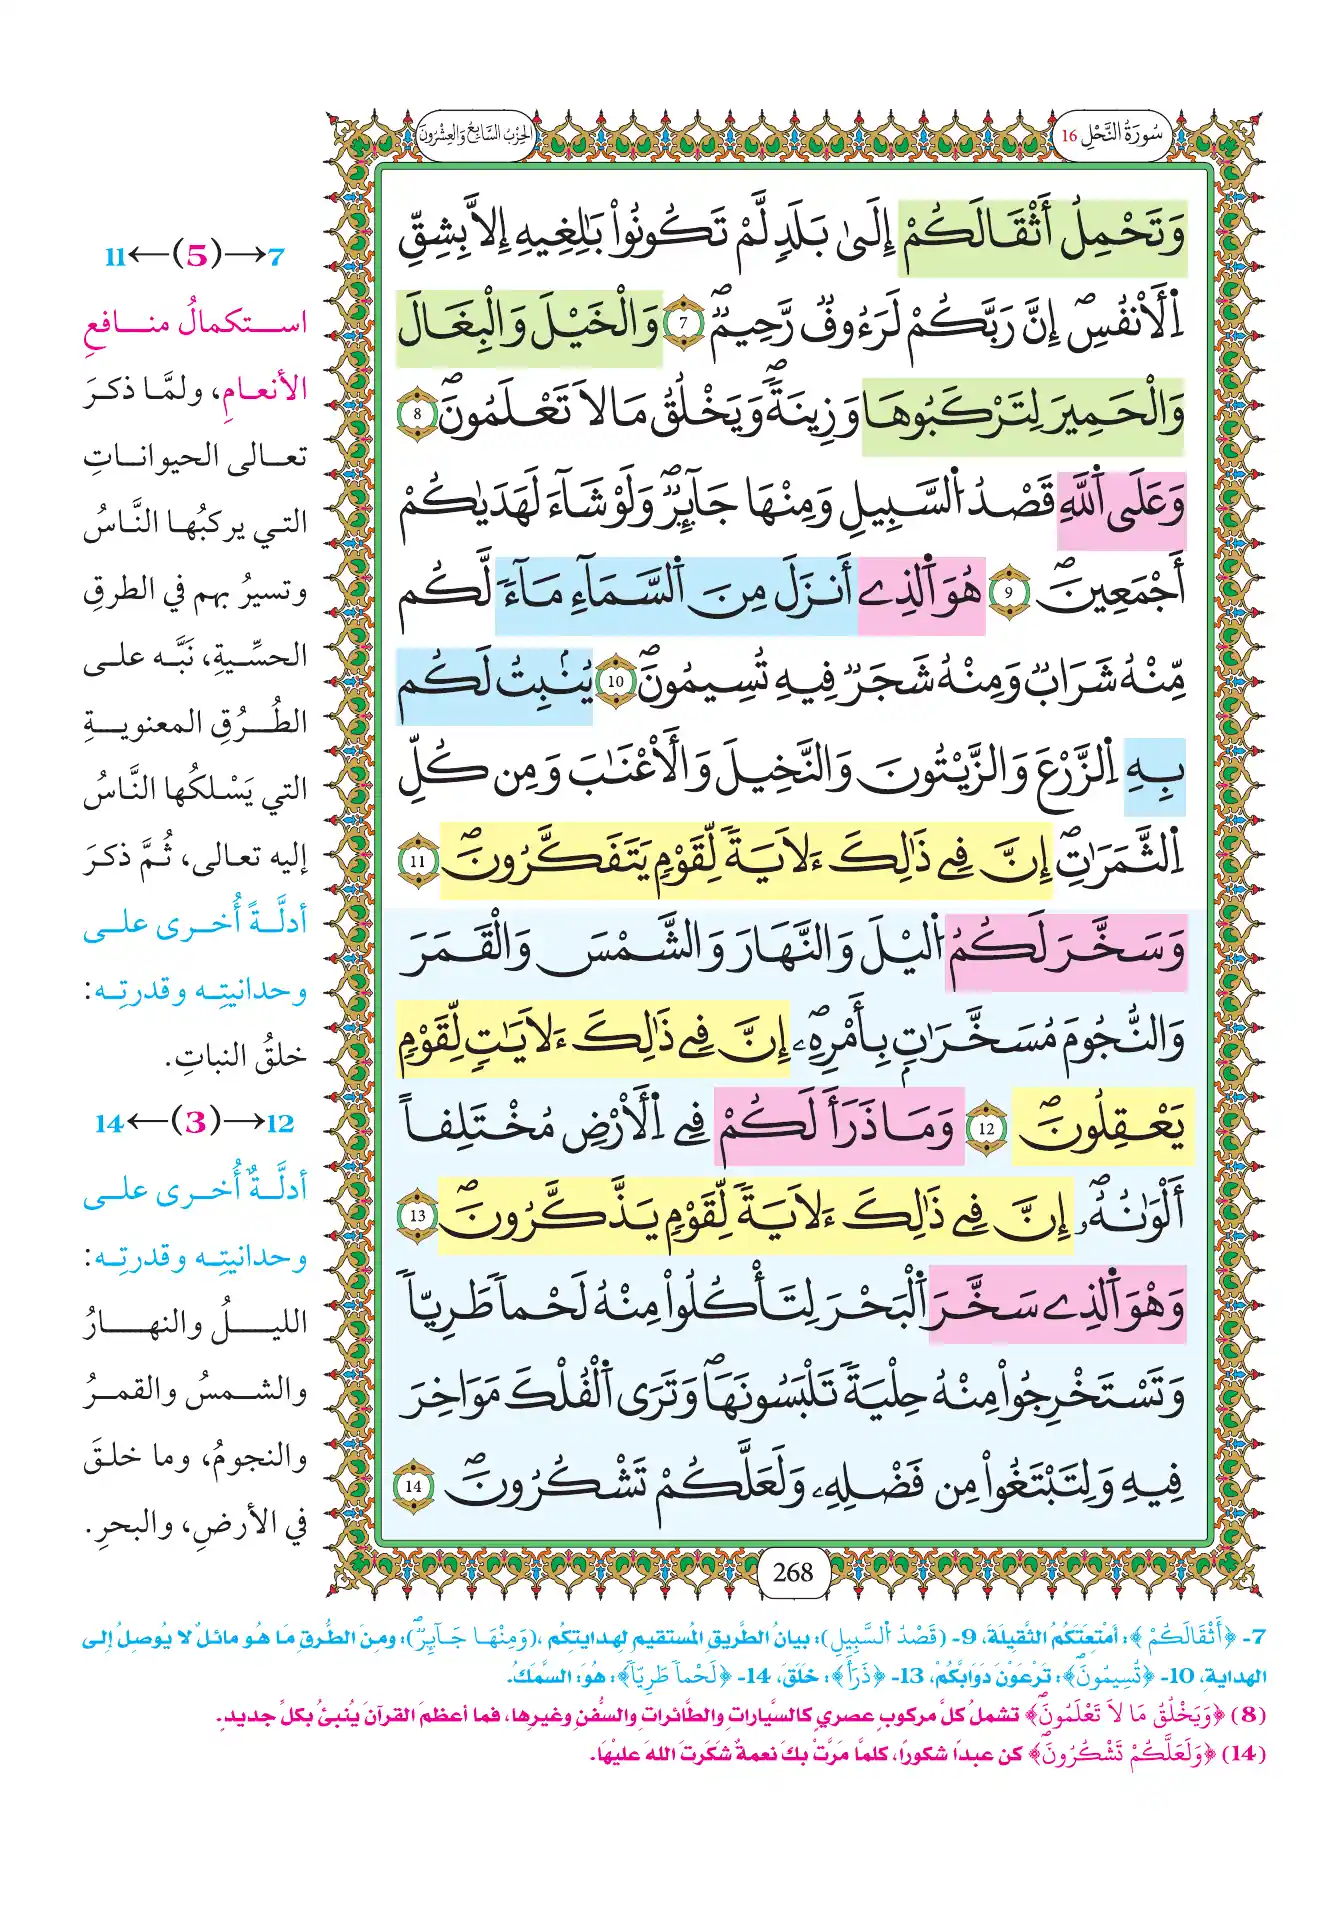 سُورَةُ النَّحْلِ 16
الحِزْبُ السَّابِعُ وَالعِشْرُونَ
وَتَحْمِلُ أَثْقَالَكُمْ إِلَىٰ بَلَدٍ لَّمْ تَكُونُواْ بَٰلِغِيهِ إِلاَّ بِشِقِّ
اِ۬لْأَنفُسِۖ إِنَّ رَبَّكُمْ لَرَءُوفٞ رَّحِيمٞۖ 7 وَالْخَيْلَ وَالْبِغَالَ
وَالْحَمِيرَ لِتَرْكَبُوهَا وَزِينَةٗۖ وَيَخْلُقُ مَا لاَ تَعْلَمُونَۖ 8
وَعَلَى اَ۬للَّهِ قَصْدُ اُ۬لسَّبِيلِ وَمِنْهَا جَآئِرٞۖ وَلَوْ شَآءَ لَهَدَيٰكُمْ
أَجْمَعِينَۖ 9 هُوَ اَ۬لذِے أَنزَلَ مِنَ اَ۬لسَّمَآءِ مَآءٗ لَّكُم
مِّنْهُ شَرَابٞ وَمِنْهُ شَجَرٞ فِيهِ تُسِيمُونَۖ 10 يُنۢبِتُ لَكُم
بِهِ اِ۬لزَّرْعَ وَالزَّيْتُونَ وَالنَّخِيلَ وَالْأَعْنَٰبَ وَمِن كُلِّ
اِ۬لثَّمَرَٰتِۖ إِنَّ فِے ذَٰلِكَ ءَلَايَةٗ لِّقَوْمٖ يَتَفَكَّرُونَۖ 11
وَسَخَّرَ لَكُمُ اُ۬ليْلَ وَالنَّهَارَ وَالشَّمْسَ وَالْقَمَرَ
وَالنُّجُومَ مُسَخَّرَٰتِۢ بِأَمْرِهِۦۖ إِنَّ فِے ذَٰلِكَ ءَلَايَٰتٖ لِّقَوْمٖ
يَعْقِلُونَۖ 12 وَمَا ذَرَأَ لَكُمْ فِے اِ۬لْأَرْضِ مُخْتَلِفاً
أَلْوَٰنُهُۥۖ إِنَّ فِے ذَٰلِكَ ءَلَايَةٗ لِّقَوْمٖ يَذَّكَّرُونَۖ 13
وَهْوَ اَ۬لذِے سَخَّرَ اَ۬لْبَحْرَ لِتَأْكُلُواْ مِنْهُ لَحْماٗ طَرِيّاٗ
وَتَسْتَخْرِجُواْ مِنْهُ حِلْيَةٗ تَلْبَسُونَهَاۖ وَتَرَى اَ۬لْفُلْكَ مَوَاخِرَ
فِيهِ وَلِتَبْتَغُواْ مِن فَضْلِهِۦ وَلَعَلَّكُمْ تَشْكُرُونَۖ 14
268
7→(5)←11
استكمالُ منافعِ
الأنعامِ، ولمَّا ذكرَ
تعالى الحيواناتِ
التي يركبُها النَّاسُ
وتسيرُ بهم في الطرقِ
الحسِّيةِ، نَبَّه على
الطُرُقِ المعنويةِ
التي يَسْلكُها النَّاسُ
إليه تعالى، ثُمَّ ذكرَ
أدلَّةً أُخرى على
وحدانيتِه وقدرتِه:
خلقُ النباتِ.
12→(3)←14
أدلَّةٌ أُخرى على
وحدانيتِه وقدرتِه:
الليلُ والنهارُ
والشمسُ والقمرُ
والنجومُ، وما خلقَ
في الأرضِ، والبحرِ.
7- ﴿أَثْقَالَكُمْ﴾: أمْتِعَتَكُمُ الثَّقِيلَةَ، 9- (قَصْدُ اُ۬لسَّبِيلِ): بيانُ الطَّريقِ المُستقيمِ لهدايتِكُم، (وَمِنْهَا جَآئِرٞۖ): ومِنَ الطُّرقِ مَا هُو مائلٌ لا يُوصِلُ إلى
الهدايةِ، 10- ﴿تُسِيمُونَۖ﴾: تَرْعَوْنَ دَوَابَّكُمْ، 13- ﴿ذَرَأَ﴾: خَلَقَ، 14- ﴿لَحْماٗ طَرِيّاٗ﴾: هُوَ: السَّمَكُ.
(8) ﴿وَيَخْلُقُ مَا لاَ تَعْلَمُونَۖ﴾ تشملُ كلَّ مركوبٍ عصريٍ كالسَّياراتِ والطَّائراتِ والسُّفنِ وغيرِها، فما أعظمَ القرآنَ يُنبئُ بكلِّ جديدٍ.
(14) ﴿وَلَعَلَّكُمْ تَشْكُرُونَۖ﴾ كن عبدًا شكورًا، كلمَّا مَرَّتْ بكَ نعمةٌ شَكَرتَ اللهَ عليْهَا.